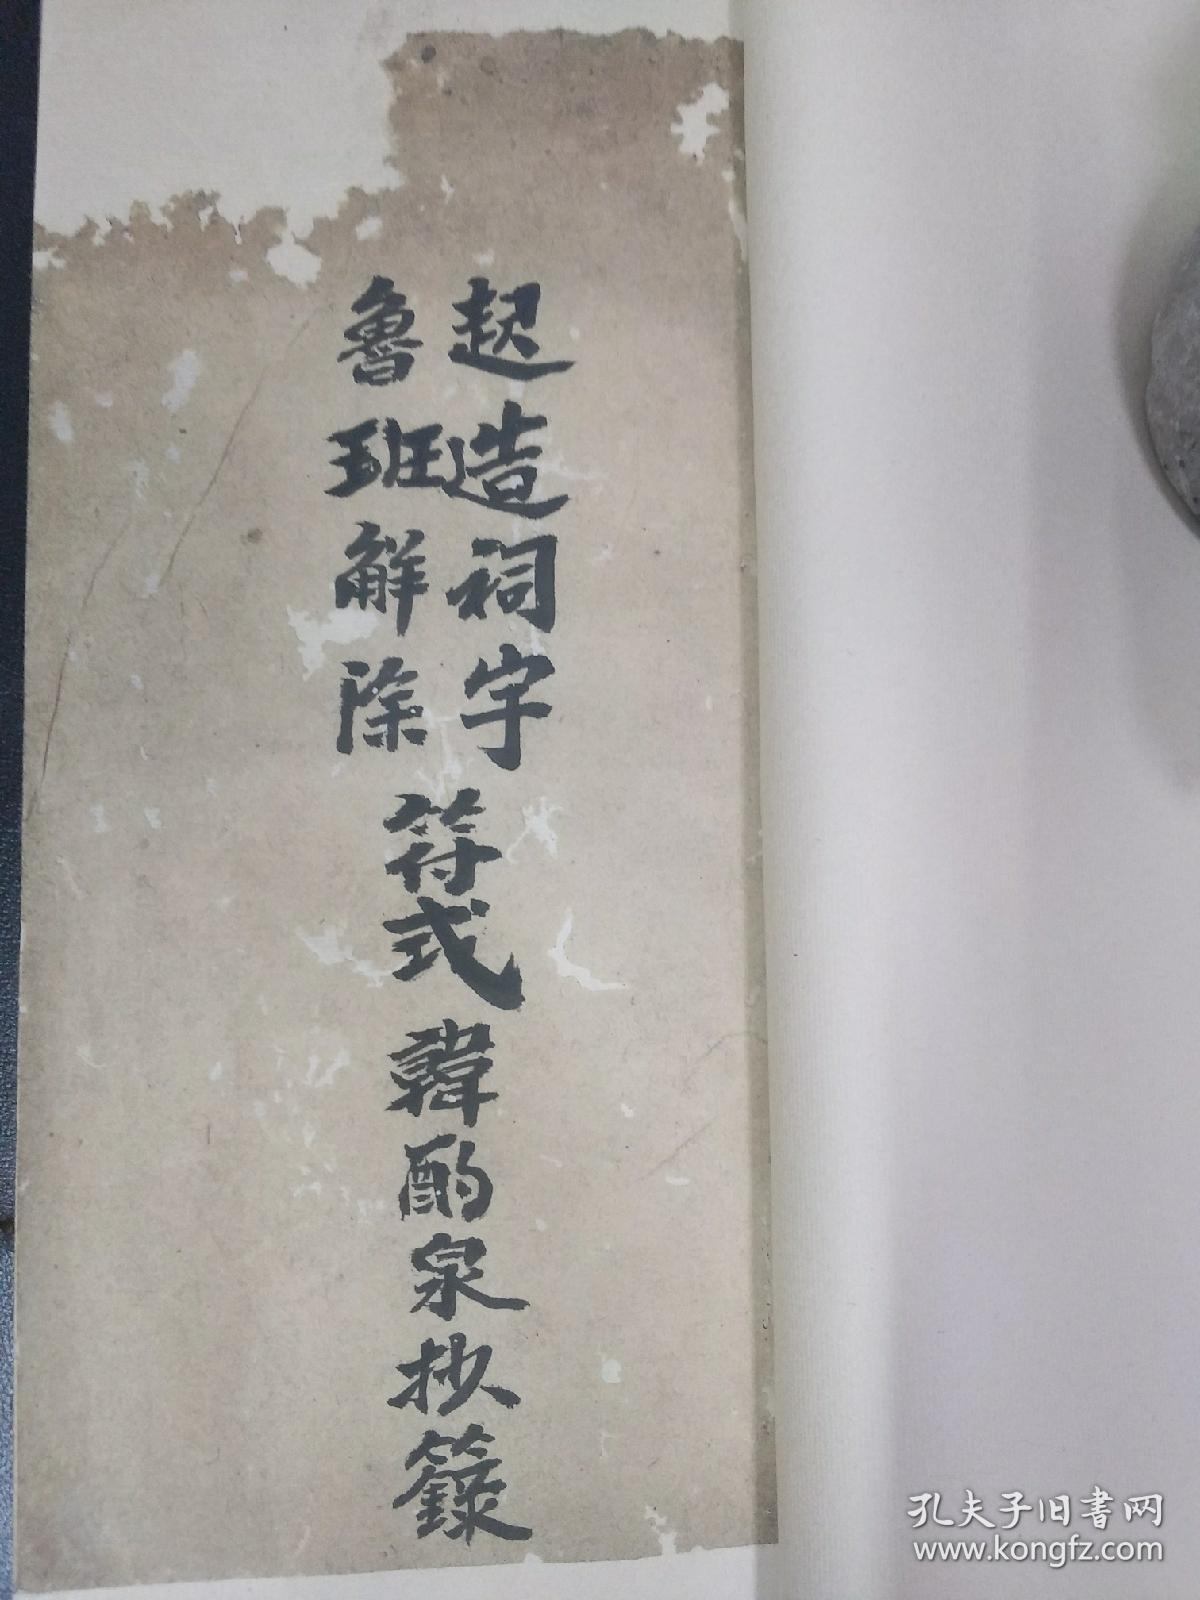 起造祠宇
魯班解除
符式
韓酌泉抄籙
孔夫子旧書网
www.kongfz.com